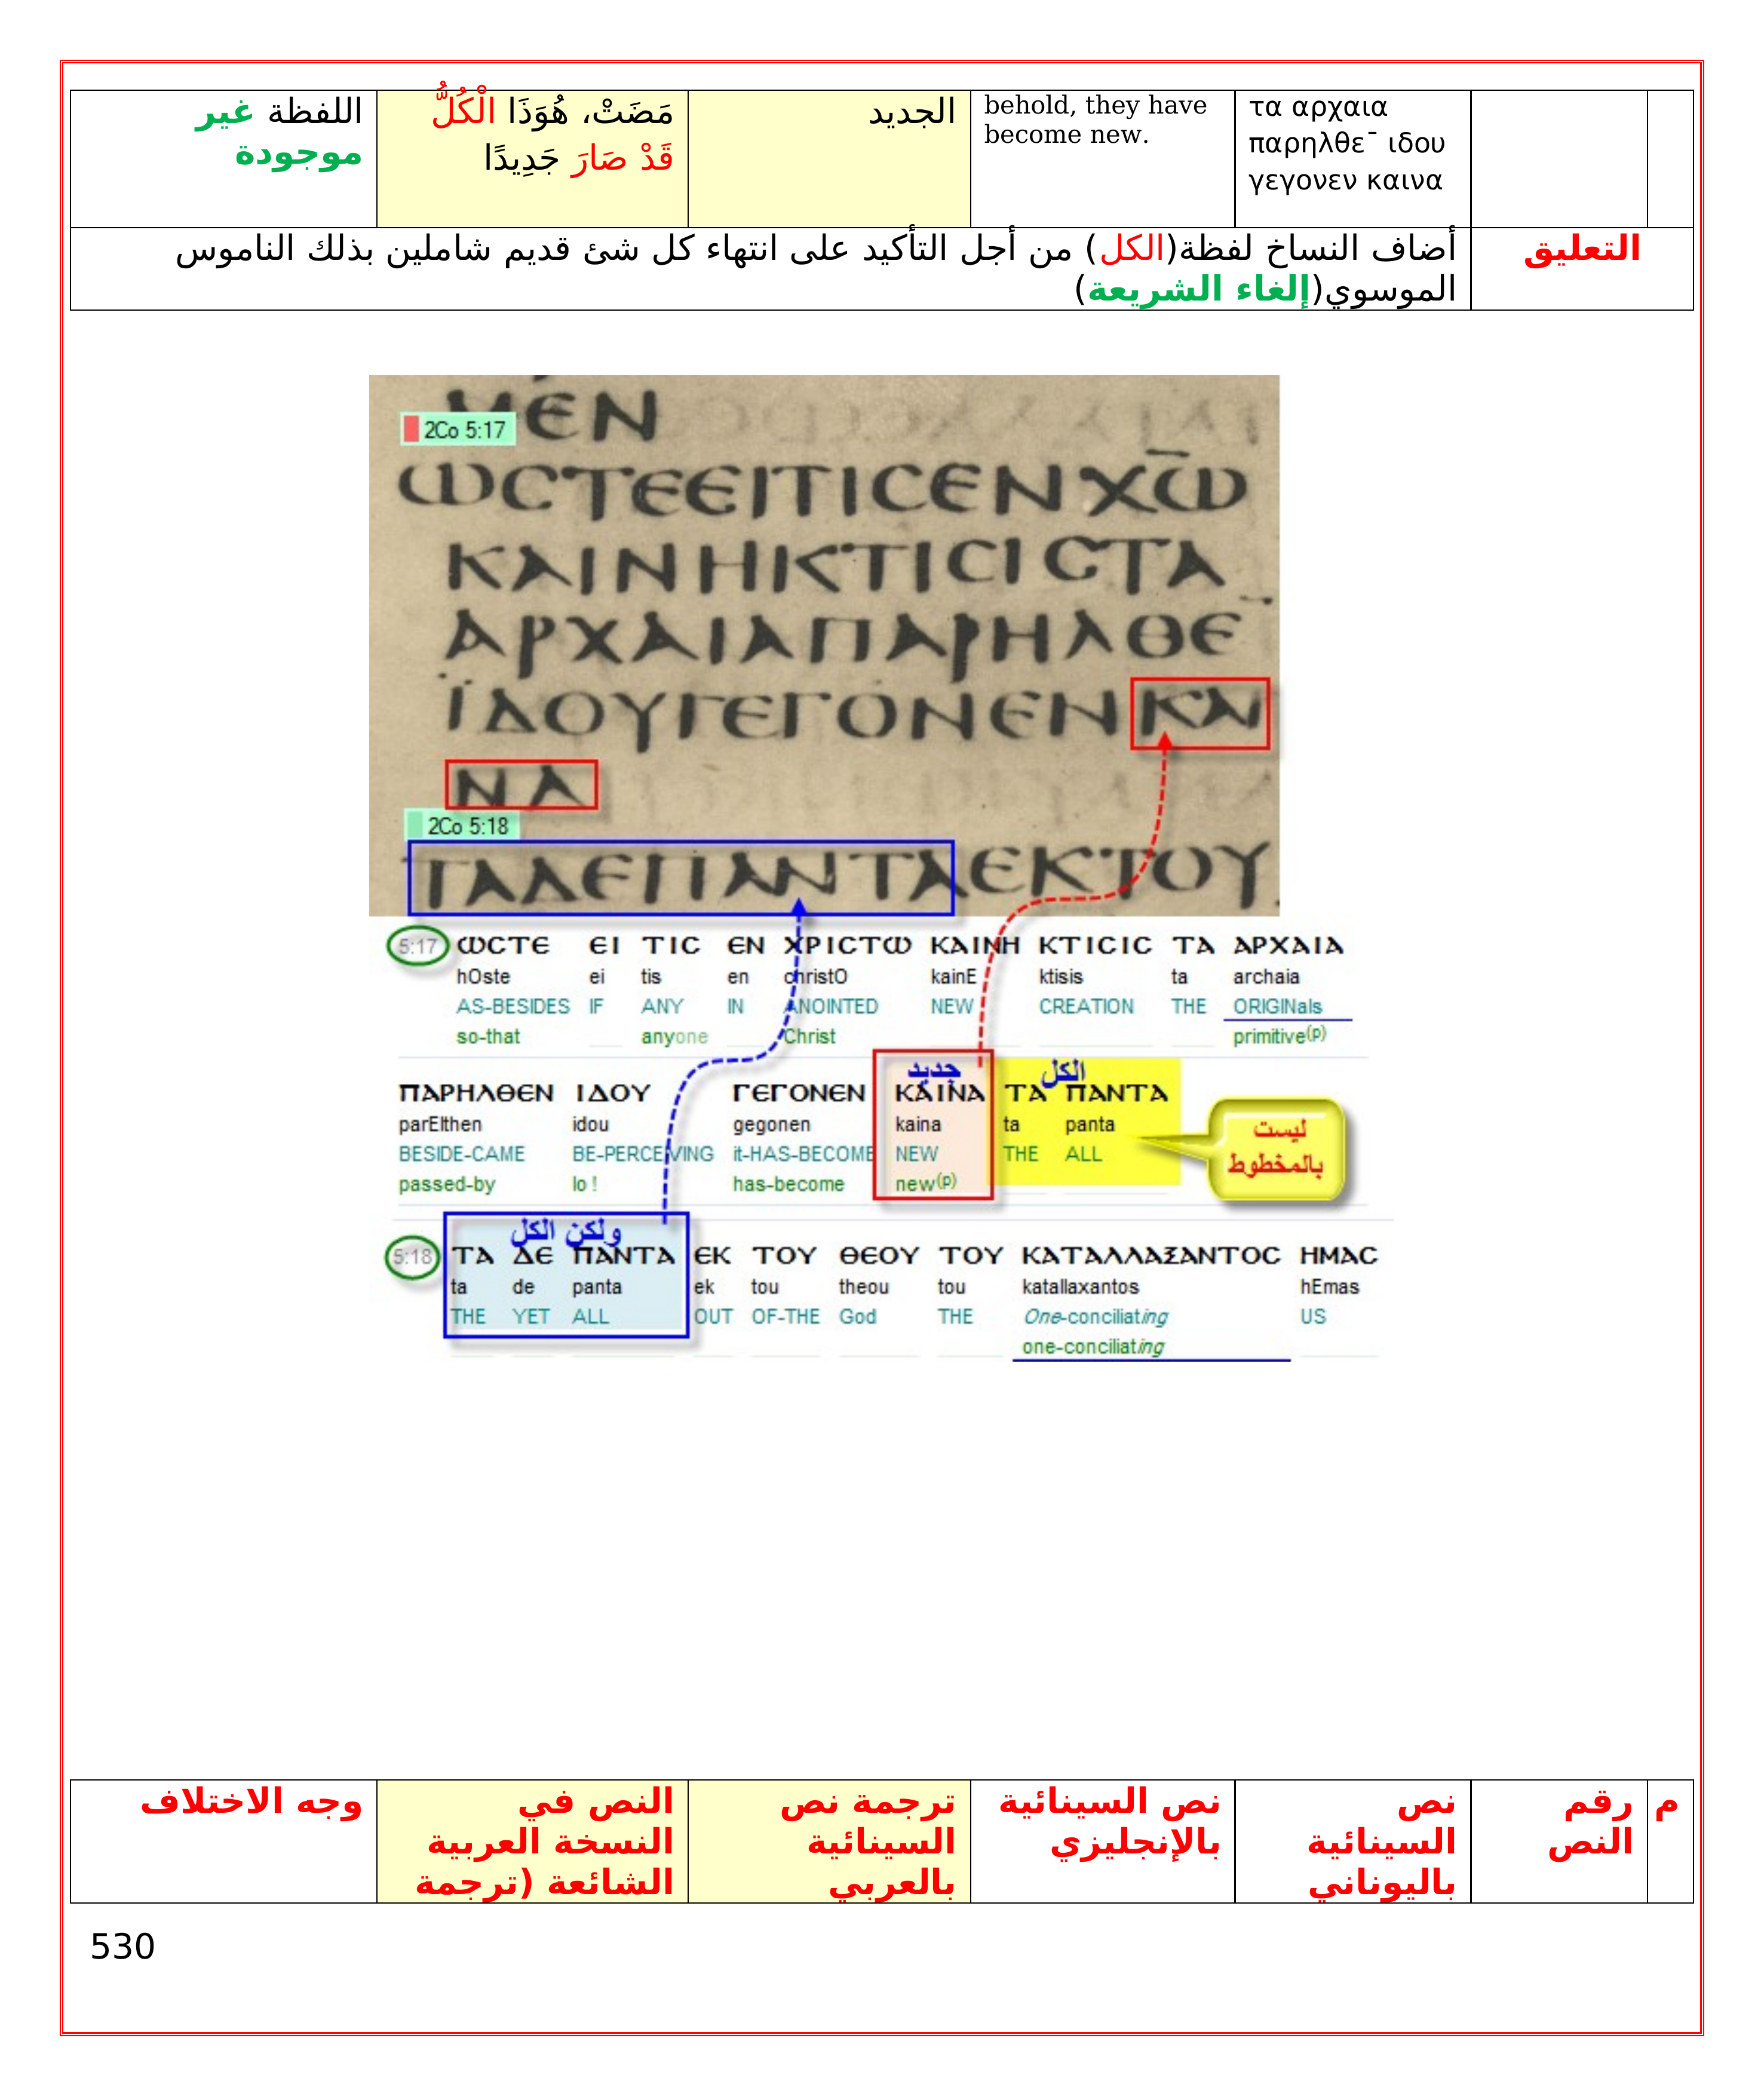 τα αρχαια
παρηλθε¯ ιδου
γεγονεν καινα
behold, they have
become new.
الجديد
مَضَتْ، هُوَذَا الْكُلُّ
قَدْ صَارَ جَدِيدًا
اللفظة غير
موجودة
التعليق
أضاف النساخ لفظة(الكل) من أجل التأكيد على انتهاء كل شئ قديم شاملين بذلك الناموس
الموسوي(إلغاء الشريعة)
ΜΕΝ
2Co 5:17
ωϲτεειτιϲενχω̅
καινηκτιϲιϲτα
αρχαιαπαρηλθε¯
ϊδουγεγονενκαι
να
2Co 5:18
ταδεπανταεκτου
5:17 ωϲτε ει τιϲ εν χριϲτω καινη κτιϲιϲ τα αρχαια
hOste ei tis en christO kainE ktisis ta archaia
AS-BESIDES IF ANY IN ANOINTED NEW CREATION THE ORIGINals
so-that anyone Christ primitive(p)
جديد الكل
παρηλθεν ιδου γεγονεν καινα τα παντα
parElthen idou gegonen kaina ta panta
BESIDE-CAME BE-PERCEIVING it-HAS-BECOME NEW THE ALL
passed-by lo ! has-become new(p)
ليست
بالمخطوط
ولكن الكل
5:18 τα δε παντα εκ του θεου του καταλλαξαντοϲ ημαϲ
ta de panta ek tou theou tou katallaxantos hEmas
THE YET ALL OUT OF-THE God THE One-conciliating US
one-conciliating
م
رقم
النص
نص
السينائية
باليوناني
نص السينائية
بالإنجليزي
ترجمة نص
السينائية
بالعربي
النص في
النسخة العربية
الشائعة (ترجمة
وجه الاختلاف
530